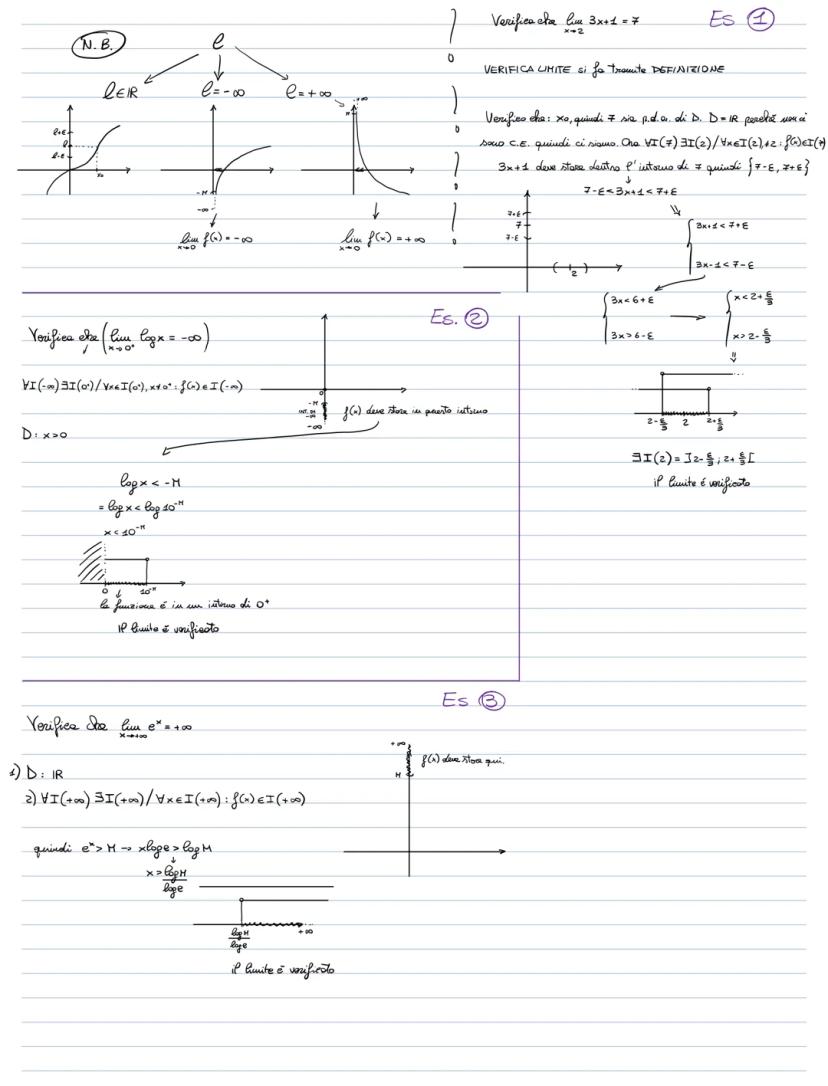 N.B.
l
l∈IR l=-∞ l=+∞
l+ε
l
l-ε
x₀
-M
-∞
+∞
M
lim f(x) = -∞
x→0
lim f(x) = +∞
x→0
Es ①
Verifica che lim 3x+1 = 7
x→2
VERIFICA LIMITE si fa tramite DEFINIZIONE
Verifico che: x₀, quindi 7 sia p.d.a. di D. D=IR perché non ci
sono C.E. quindi ci siamo. Ora ∀I(7) ∃I(2)/∀x∈I(2),≠2: f(x)∈I(7)
3x+1 deve stare dentro l'intorno di 7 quindi {7-ε, 7+ε}
7-ε<3x+1<7+ε
7+ε
7
7-ε
2
3x+1<7+ε
3x-1<7-ε
3x<6+ε
3x>6-ε
x<2+ε/3
x>2-ε/3
2-ε/3 2 2+ε/3
∃I(2)=]2-ε/3; 2+ε/3[
il limite è verificato
Es. ②
Verifica che (lim logx = -∞)
x→0⁺
∀I(-∞)∃I(0⁺)/∀x∈I(0⁺), x≠0⁺: f(x)∈I(-∞)
0
-M
INT. DI
-∞
-∞
f(x) deve stare in questo intorno
D: x>0
logx < -M
= logx < log10⁻ᴹ
x<10⁻ᴹ
0 10⁻ᴹ
la funzione è in un intorno di 0⁺
Il limite è verificato
Es ③
Verifica che lim eˣ = +∞
x→+∞
+∞
f(x) deve stare qui.
M
1) D: IR
2) ∀I(+∞) ∃I(+∞)/∀x∈I(+∞): f(x)∈I(+∞)
quindi eˣ>M → xloge>logM
x>logM/loge
logM/loge +∞
il limite è verificato